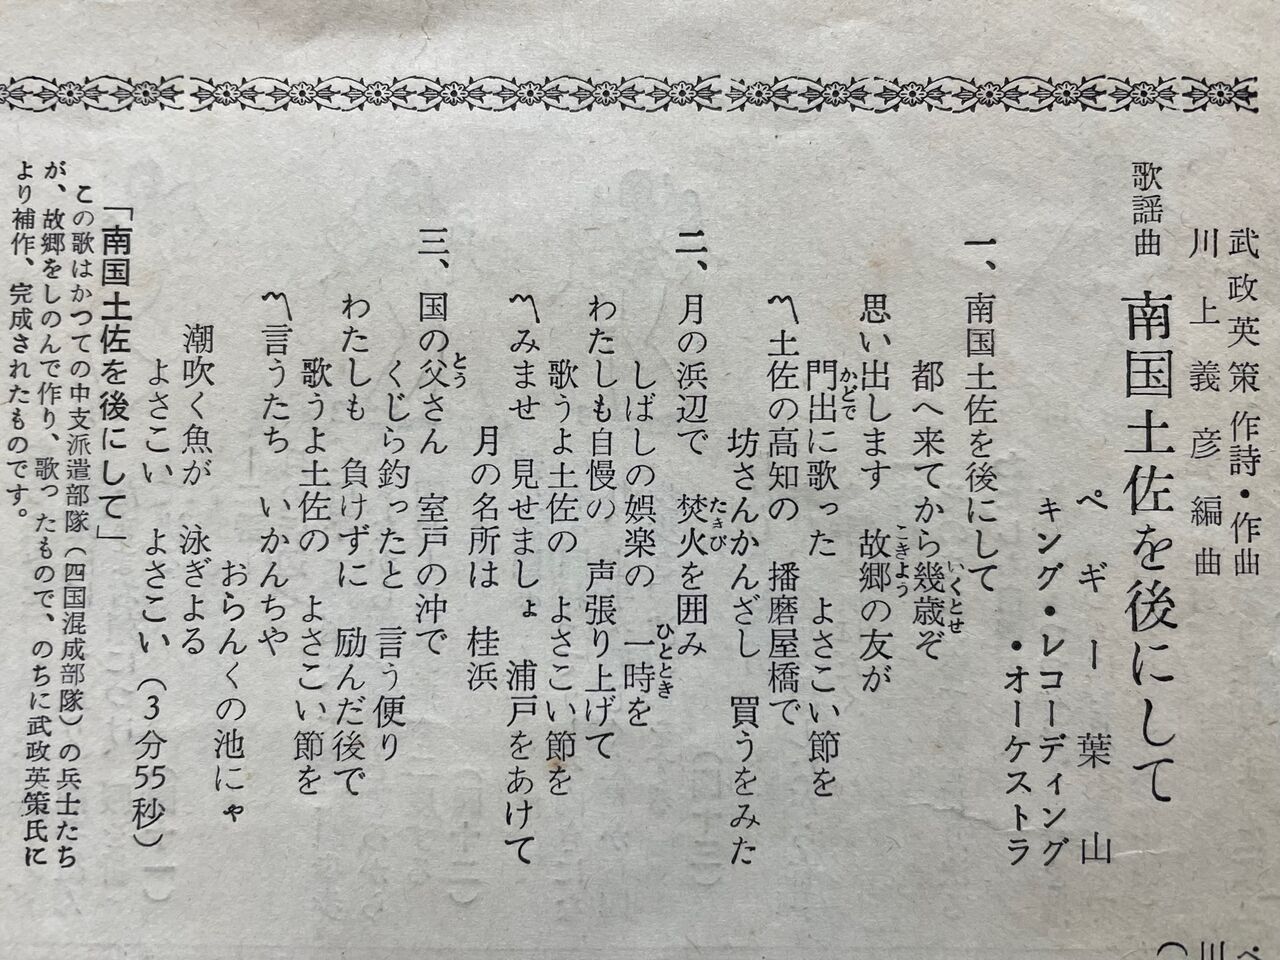 武政英策 作詩・作曲
川上義彦 編曲
歌謡曲 南国土佐を後にして
ペギー葉山
キング・レコーディング
・オーケストラ
一、南国土佐を後にして
都へ来てから幾歳ぞ
いくとせ
思い出します 故郷の友が
こきよう
門出に歌った よさこい節を
かどで
〽土佐の高知の 播磨屋橋で
坊さんかんざし 買うをみた
二、月の浜辺で 焚火を囲み
たきび
しばしの娯楽の 一時を
ひととき
わたしも自慢の 声張り上げて
歌うよ土佐の よさこい節を
〽みませ 見せましょ 浦戸をあけて
月の名所は 桂浜
三、国の父さん 室戸の沖で
とう
くじら釣ったと 言う便り
わたしも 負けずに 励んだ後で
歌うよ土佐の よさこい節を
〽言うたち いかんちや
おらんくの池にゃ
潮吹く魚が 泳ぎよる
よさこい よさこい (3分55秒)
「南国土佐を後にして」
この歌はかつての中支派遣部隊(四国混成部隊)の兵士たち
が、故郷をしのんで作り、歌ったもので、のちに武政英策氏に
より補作、完成されたものです。